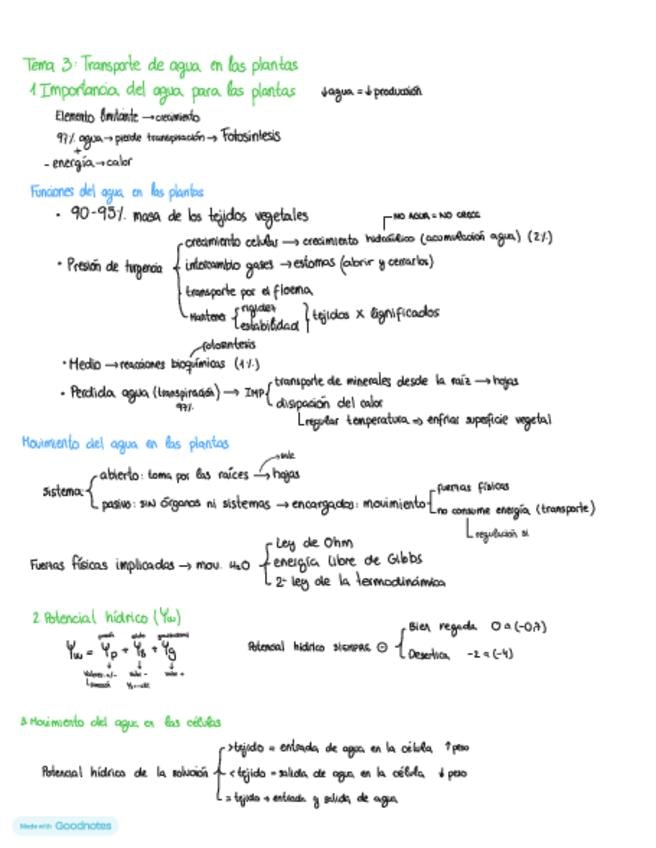 Tema 3: Transporte de agua en las plantas
1 Importancia del agua para las plantas ↓agua = ↓producción
Elemento limitante → crecimiento
97% agua → pierde transpiración → Fotosíntesis
+
- energía → calor
Funciones del agua en las plantas
· 90-95% masa de los tejidos vegetales
NO AGUA = NO CRECE
crecimiento celular → crecimiento hidráulico (acumulación agua) (2%)
· Presión de turgencia
intercambio gases → estomas (abrir y cerrarlos)
transporte por el floema
Mantener rigidez
estabilidad
tejidos X lignificados
fotosíntesis
· Medio → reacciones bioquímicas (1%)
· Perdida agua (transpiración) → IMP
97%
transporte de minerales desde la raíz → hojas
disipación del calor
regular temperatura → enfriar superficie vegetal
Movimiento del agua en las plantas
sale
sistema
abierto: toma por las raíces → hojas
pasivo: SIN órganos ni sistemas → encargados: movimiento
fuerzas físicas
no consume energía (transporte)
regulación si
Fuerzas físicas implicadas → mov. H₂O
Ley de Ohm
energía libre de Gibbs
2ª ley de la termodinámica
2 Potencial hídrico (Ψw)
Ψw = Ψp + Ψs + Ψg
Potencial hídrico SIEMPRE ⊖
Bien regada 0 a (-0,7)
Desértica -2 a (-4)
3 Movimiento del agua en las células
Potencial hídrico de la solución
> tejido = entrada de agua en la célula ↑ peso
< tejido = salida de agua en la célula ↓ peso
= tejido → entrada y salida de agua
Made with Goodnotes